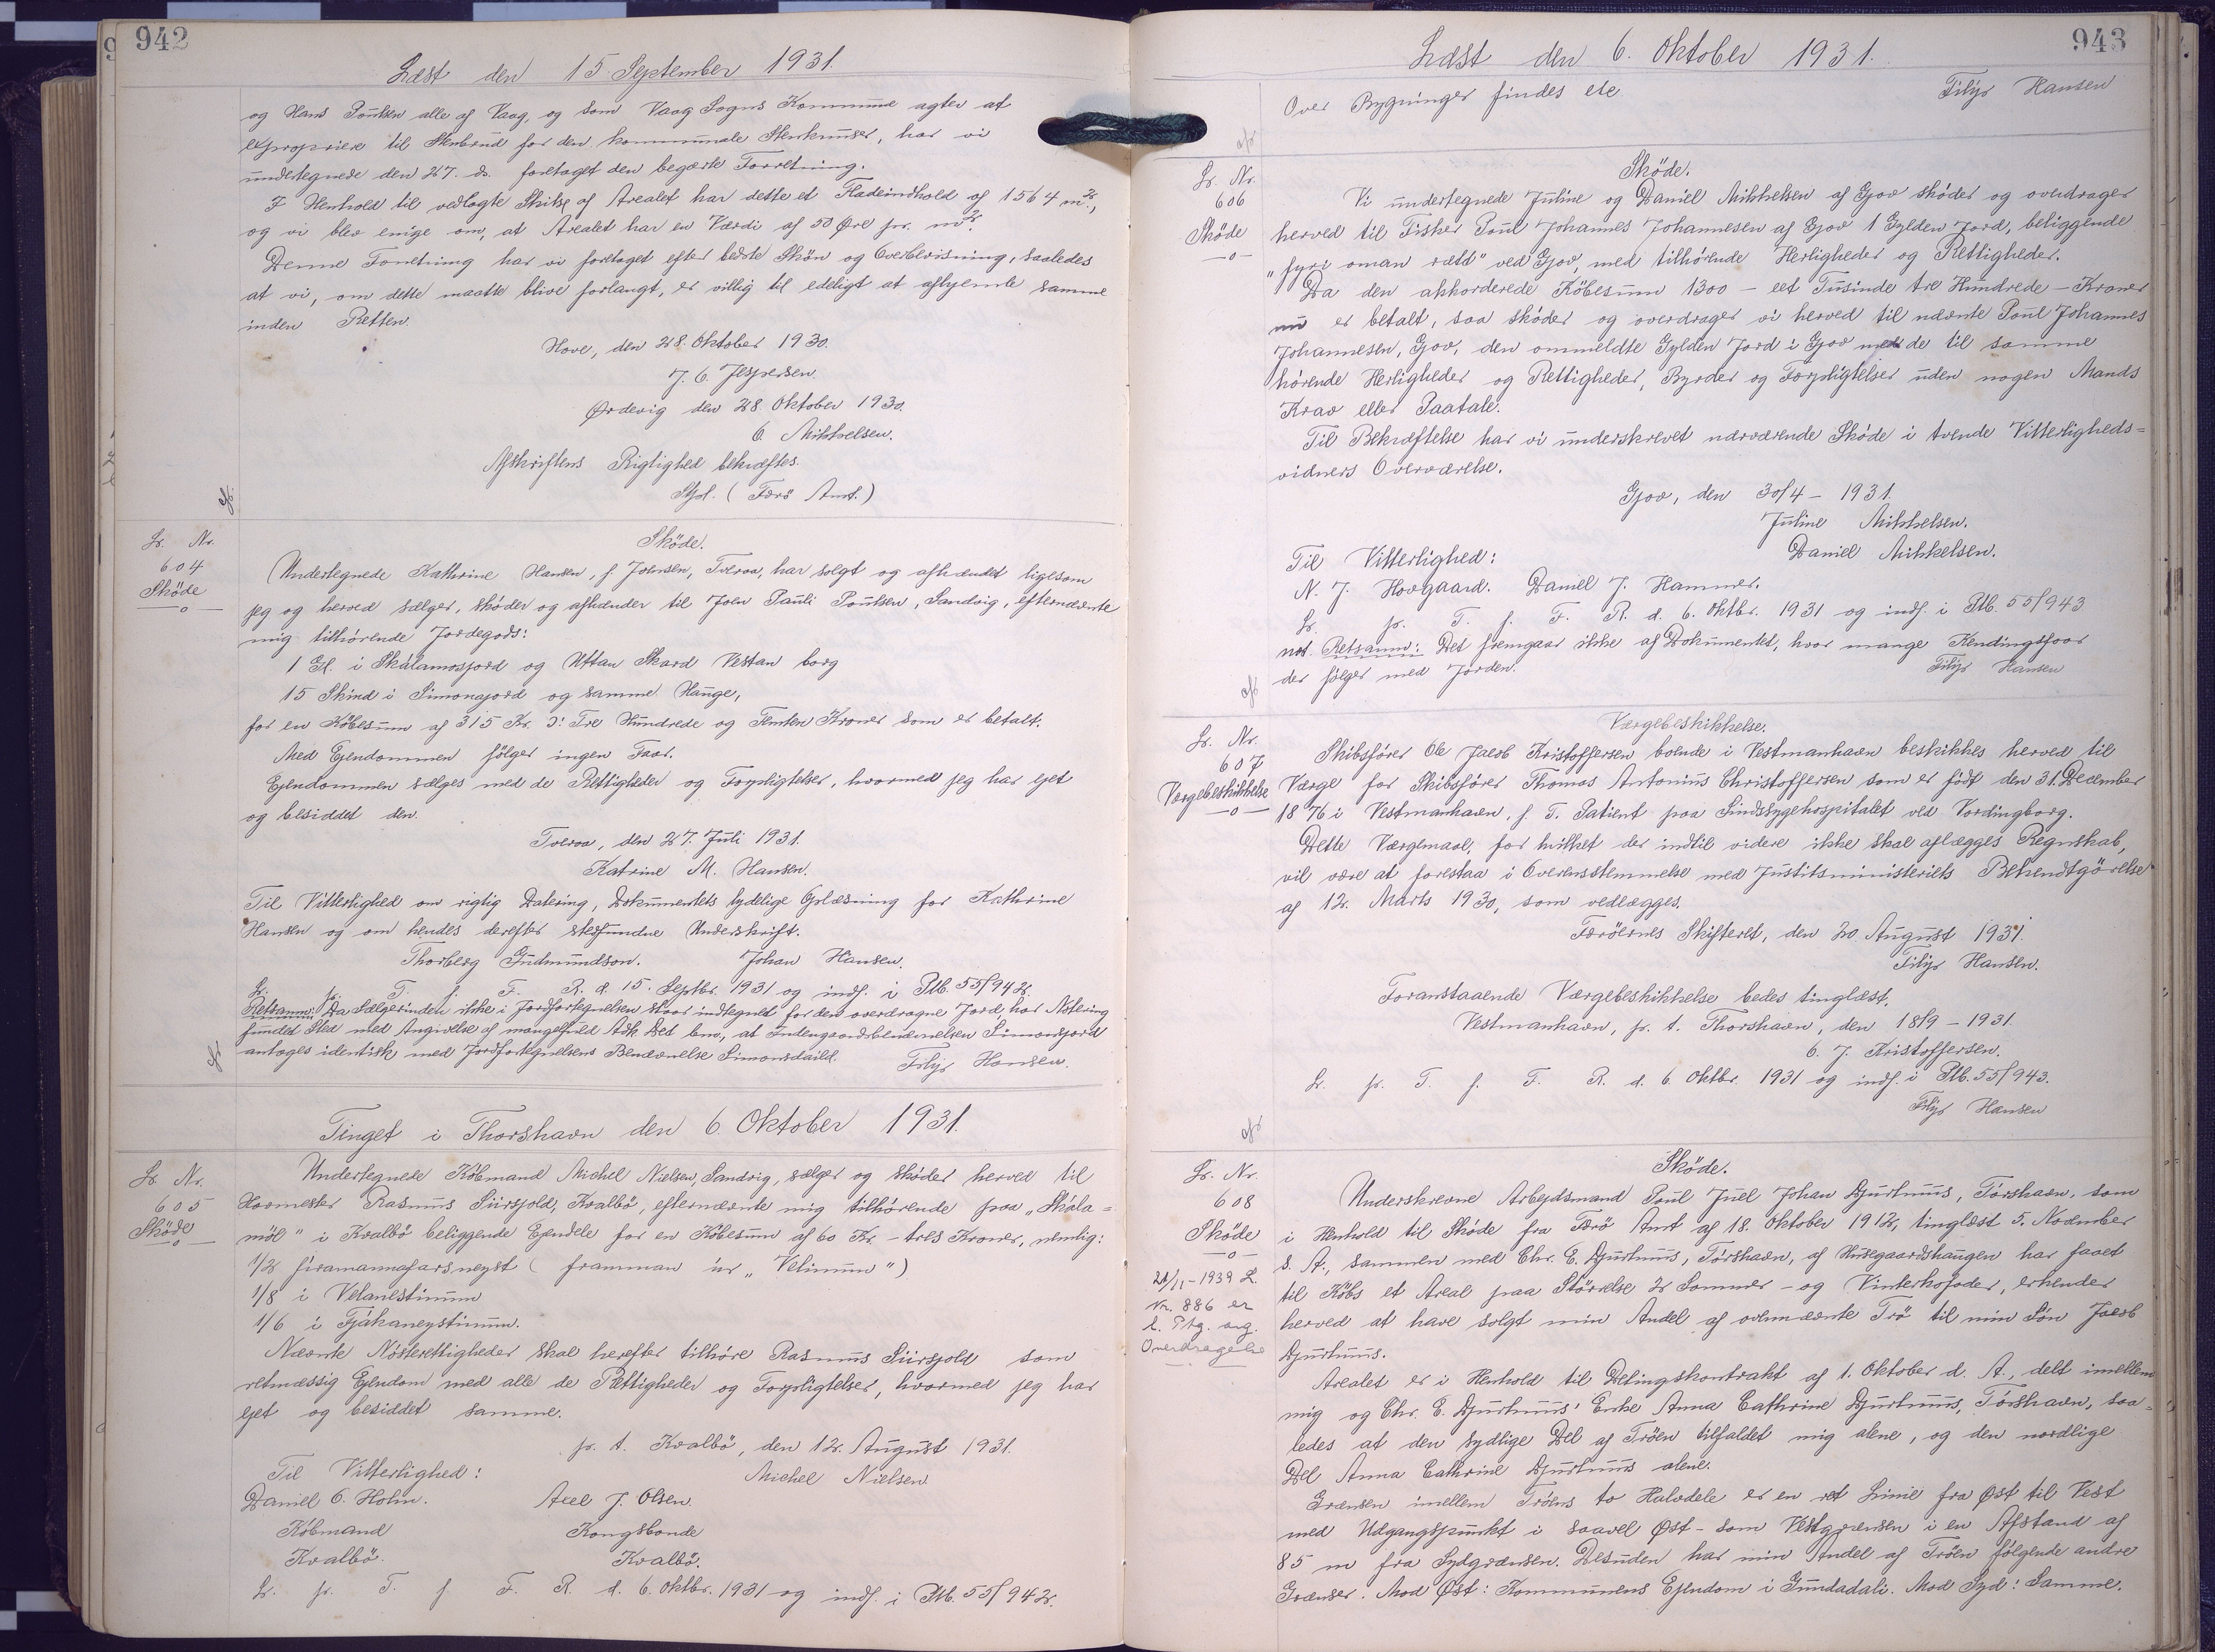 942
Læst den 15 September 1931.
og Hans Poulsen alle af Vaag, og som Vaag Sogns Kommune agter at
expropriere til Stenbrud for den kommunale Stenknuser, har vi
undertegnede den 27. ds. foretaget den begærte Forretning.
I Henhold til vedlagte Skitse af Arealet har dette et Fladeindhold af 1564 m².,
og vi blev enige om, at Arealet har en Værdi af 50 Øre pr. m².
Denne Forretning har vi foretaget efter bedste Skön og Overbevisning, saaledes
at vi, om dette maatte blive forlangt, er villig til edeligt at afhjemle samme
inden Retten.
Hove, den 28. Oktober 1930.
J. C. Jespersen.
Ørdevig den 28. Oktober 1930.
C. Mikkelsen.
Afskriftens Rigtighed bekræftes.
Stpl. (Færö Amt.)
Lb. Nr.
604
Sköde
Sköde.
Undertegnede Kathrine Hansen, f. Joensen, Tveraa, har solgt og afhændet ligesom
jeg og herved sælger, sköder og afhænder til Joen Pauli Poulsen, Sandvig, efternævnte
mig tilhörende Jordegods:
1 Gl. i Skálamosjord og Uttan Skard Vestan borg
15 Skind i Simonajord og samme Hauge,
for en Köbesum af 315 Kr. ɔ: Tre Hundrede og Femten Kroner som er betalt.
Med Ejendommen fölger ingen Faar.
Ejendommen sælges med de Rettigheder og Forpligtelser, hvormed jeg har ejet
og besiddet den.
Tveraa, den 27. Juli 1931.
Katrine M. Hansen.
Til Vitterlighed om rigtig Datering, Dokumentets tydelige Oplæsning for Kathrine
Hansen og om hendes derefter stedfundne Underskrift.
Thorberg Gudmundson. Johan Hansen.
L. p. T. f. F. R. d. 15. Septbr. 1931 og indf. i Ptb. 55/942.
Retsanm: Da Sælgerinden ikke i Jordfortegnelsen staar indtegnet for den overdragne Jord, har Notering
fundet Sted med Angivelse af mangelfuld Adk. Det bem., at Indengaardsbenævnelsen Simonsjord
antages identisk med Jordfortegnelsens Benævnelse Simonsdaild. Filip Hansen.
Tinget i Thorshavn den 6. Oktober 1931.
Lb. Nr.
605
Sköde
Undertegnede Köbmand Michel Nielsen, Sandvig, sælger og sköder herved til
Havnemester Rasmus Siursjold, Kvalbö, efternævnte mig tilhörende paa "Skála=
möl" i Kvalbö beliggende Ejendele for en Köbesum af 60 Kr. - tres Kroner, nemlig:
1/2 firamannafarsneyst (framman úr "Velinum")
1/8 i Velanestinum
1/6 i Fjákaneystinum.
Nævnte Nösterettigheder skal herefter tilhöre Rasmus Siursjold som
retmæssig Ejendom med alle de Rettigheder og Forpligtelser, hvormed jeg har
ejet og besiddet samme.
p. t. Kvalbö, den 12. August 1931.
Til Vitterlighed: Michel Nielsen
Daniel C. Holm. Axel J. Olsen.
Köbmand Kongsbonde
Kvalbö. Kvalbö.
L. p. T. f. F. R. d. 6. Oktbr. 1931 og indf. i Ptb. 55/942.
943
Læst den 6. Oktober 1931.
Over Bygninger findes etc Filip Hansen
Lb. Nr.
606
Sköde
Sköde.
Vi undertegnede Juline og Daniel Mikkelsen af Gjov sköder og overdrager
herved til Fisker Poul Johannes Johannesen af Gjov 1 Gylden Jord, beliggende
"fyri oman rætt" ved Gjov, med tilhörende Herligheder og Rettigheder.
Da den akkorderede Köbesum 1300 - eet Tusinde tre Hundrede - Kroner
nu er betalt, saa sköder og overdrager vi herved til nævnte Poul Johannes
Johannesen, Gjov, den ommeldte Gylden Jord i Gjov med de til samme
hörende Herligheder og Rettigheder, Byrder og Forpligtelser uden nogen Mands
Krav eller Paatale.
Til Bekræftelse har vi underskrevet nærværende Sköde i tvende Vitterligheds=
vidners Overværelse.
Gjov, den 30/4 - 1931.
Juline Mikkelsen.
Til Vitterlighed: Daniel Mikkelsen.
N. J. Hovgaard. Daniel J. Hammer.
L. p. T. f. F. R. d. 6. Oktbr. 1931 og indf. i Ptb. 55/943
not. Retsanm: Det fremgaar ikke af Dokumentet, hvor mange Kendingsfaar
der fölger med Jorden. Filip Hansen
Lb. Nr.
607
Værgebeskikkelse
Værgebeskikkelse.
Skibsförer Ole Jacob Kristoffersen boende i Vestmanhavn beskikkes herved til
Værge for Skibsförer Thomas Antonius Christoffersen som er födt den 31. December
1876 i Vestmanhavn, f. T. Patient paa Sindssygehospitalet ved Vordingborg.
Dette Værgemaal, for hvilket der indtil videre ikke skal aflægges Regnskab,
vil være at forestaa i Overensstemmelse med Justitsministeriets Bekendtgörelse
af 12. Marts 1930, som vedlægges.
Færöernes Skifteret, den 20 August 1931.
Filip Hansen.
Foranstaaende Værgebeskikkelse bedes tinglæst.
Vestmanhavn, p. t. Thorshavn, den 18/9 - 1931.
O. J. Kristoffersen.
L. p. T. f. F. R. d. 6 Oktbr. 1931 og indf. i Ptb. 55/943.
Filip Hansen
Lb. Nr.
608
Sköde
21/11-1939 L.
Nr. 886 er
Overdragelse
Sköde.
Underskrevne Arbejdsmand Poul Juel Johan Djurhuus, Tórshavn, som
i Henhold til Sköde fra Færö Amt af 18. Oktober 1912, tinglæst 5. November
s. A., sammen med Chr. E. Djurhuus, Tórshavn, af Husegaardshaugen har faaet
til Köbs et Areal paa Störrelse 2 Sommer- og Vinterkofoder, erkender
herved at have solgt min Andel af ovennævnte Trö til min Sön Jacob
Djurhuus.
Arealet er i Henhold til Delingskontrakt af 1. Oktober d. A., delt imellem
mig og Chr. E. Djurhuus' Enke Anna Cathrine Djurhuus, Tórshavn, saa=
ledes at den sydlige Del af Tröen tilfaldet mig alene, og den nordlige
Del Anna Cathrine Djurhuus alene.
Grænsen imellem Tröens to Halvdele er en ret Linie fra Øst til Vest
med Udgangspunkt i saavel Øst- som Vestgrænsen i en Afstand af
85 m fra Sydgrænsen. Desuden har min Andel af Tröen fölgende andre
Grænser. Mod Øst: Kommunens Ejendom i Gundadali. Mod Syd: Samme.